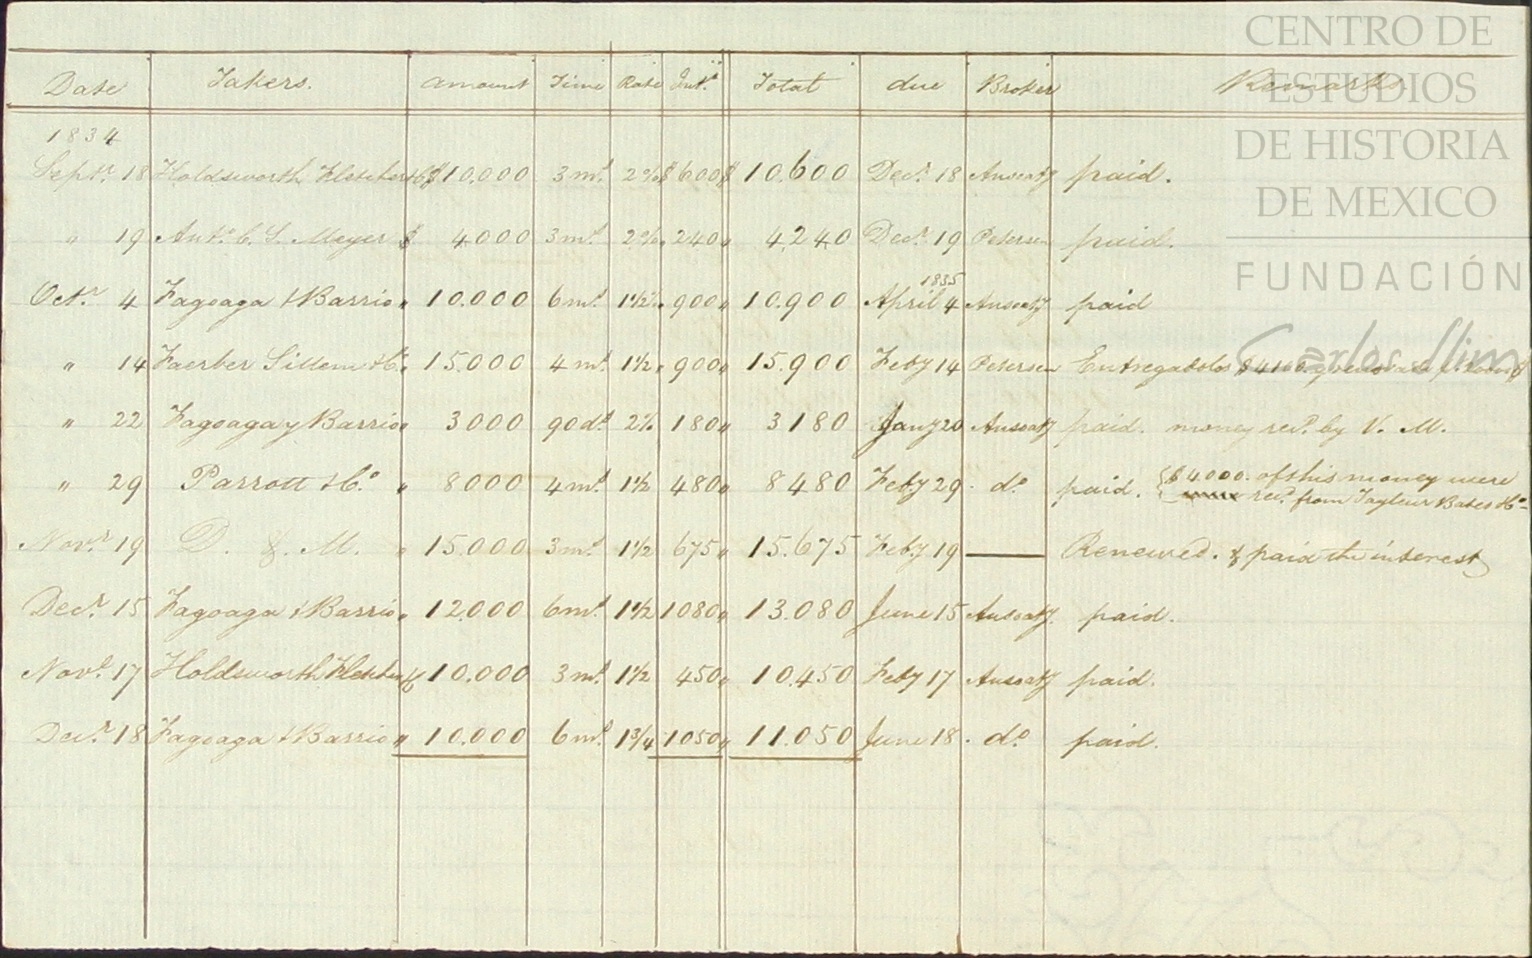 CENTRO DE
ESTUDIOS
DE HISTORIA
DE MEXICO
FUNDACIÓN
Carlos Slim
Date Takers. Amount Time Rate Int.t Total due Broker Remarks.
1834
Sept.r 18 Holdsworth Fletcher &Co $ 10,000 3 m.s 2% $ 600 $ 10.600 Dec.r 18 paid.
" 19 Ant.o C. S. Meyer $ 4000 3 m.s 2% " 240 " 4,240 Dec.r 19 Petersen paid.
1835
Oct.r 4 Fagoaga & Barrio " 10.000 6 m.s 1½% " 900 " 10.900 April 4 paid
" 14 Faerber Sillem & Co. " 15.000 4 m.s 1½ " 900 " 15.900 Feby 14 Petersen Entregadolos
" 22 Fagoaga y Barrio " 3000 90 d.s 2% 180 " 3180 Jany 20 paid. money rec.d by V. M.
" 29 Parrott & Co. " 8000 4 m.s 1½ 480 " 8480 Feby 29 . do paid. { $4000. of this money were
rec.d from Tayleur Bates & Co
Nov.r 19 D. & M. " 15.000 3 m.s 1½ 675 " 15.675 Feby 19 — Renewed. & paid the interest
Dec.r 15 Fagoaga & Barrio " 12000 6 m.s 1½ 1080 " 13.080 June 15 paid.
Nov.r 17 Holdsworth Fletcher &Co 10.000 3 m.s 1½ 450 " 10.450 Feby 17 paid.
Dec.r 18 Fagoaga & Barrio " 10.000 6 m.s 1¾ 1050 " 11.050 June 18 . do paid.